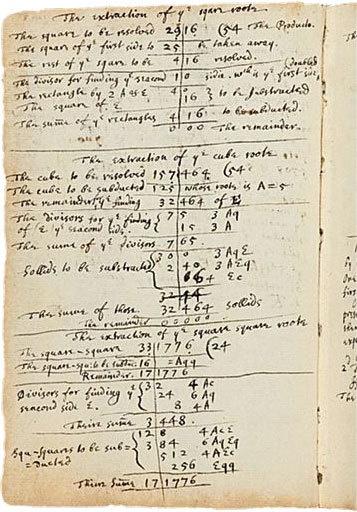 The extraction of yᵉ square roote
The square to be resolved 29 16 (54 The Producte.
The square of yᵉ first side to 25 be taken away.
The rest of yᵉ square to be 4 16 resolved.
The divisor for finding yᵉ seacond 10 side. wᶜʰ is yᵉ first side doubled
The rectangle by 2 A as E 4 0
The square of E 16 } to be substracted
The sume of yᵉ rectangles 4 16 to be subducted.
0 00 The remainder.
The extraction of yᵉ cube roote
The cube to be resolved 157 464 (54
The cube to be subducted 125 whose roote is A = 5
The remainder for yᵉ finding 32 464 of E
The divisors for yᵉ finding 7 5 3 Aq
of E yᵉ seacond side 15 3 A
The sume of yᵉ divisors 7 65.
30 0 3 AqE
Sollids to be substracted 2 40 3 AEq
64 Ec
The sume of those 32 464 sollids
The remainder 00 000
The extraction of yᵉ square square roote
The square-square 33 1776 (24
The square-squ: to be subtr: 16 = Aqq
Remainder. 17 1776
Divisors for finding yᵉ 3 2 4 Ac
seacond side E. 24 6 Aq
8 4 A
Theire sume 3 448.
12 8 4 AcE
Squ-squares to be sub= 3 84 6 AqEq
=ducted 512 4 AEc
256 Eqq
Theire sume 17 1776